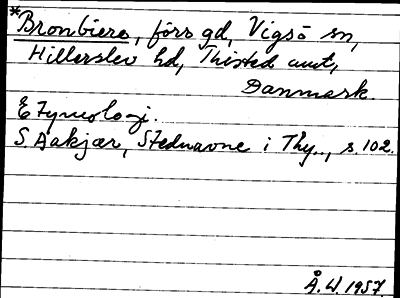 *Bronbierg, försv. gd, Vigsö sn,
Hillerslev hd, Thisted amt,
Danmark.
Etymologi.
S. Aakjær, Stednavne i Thy.., s. 102.
Å.W. 1957